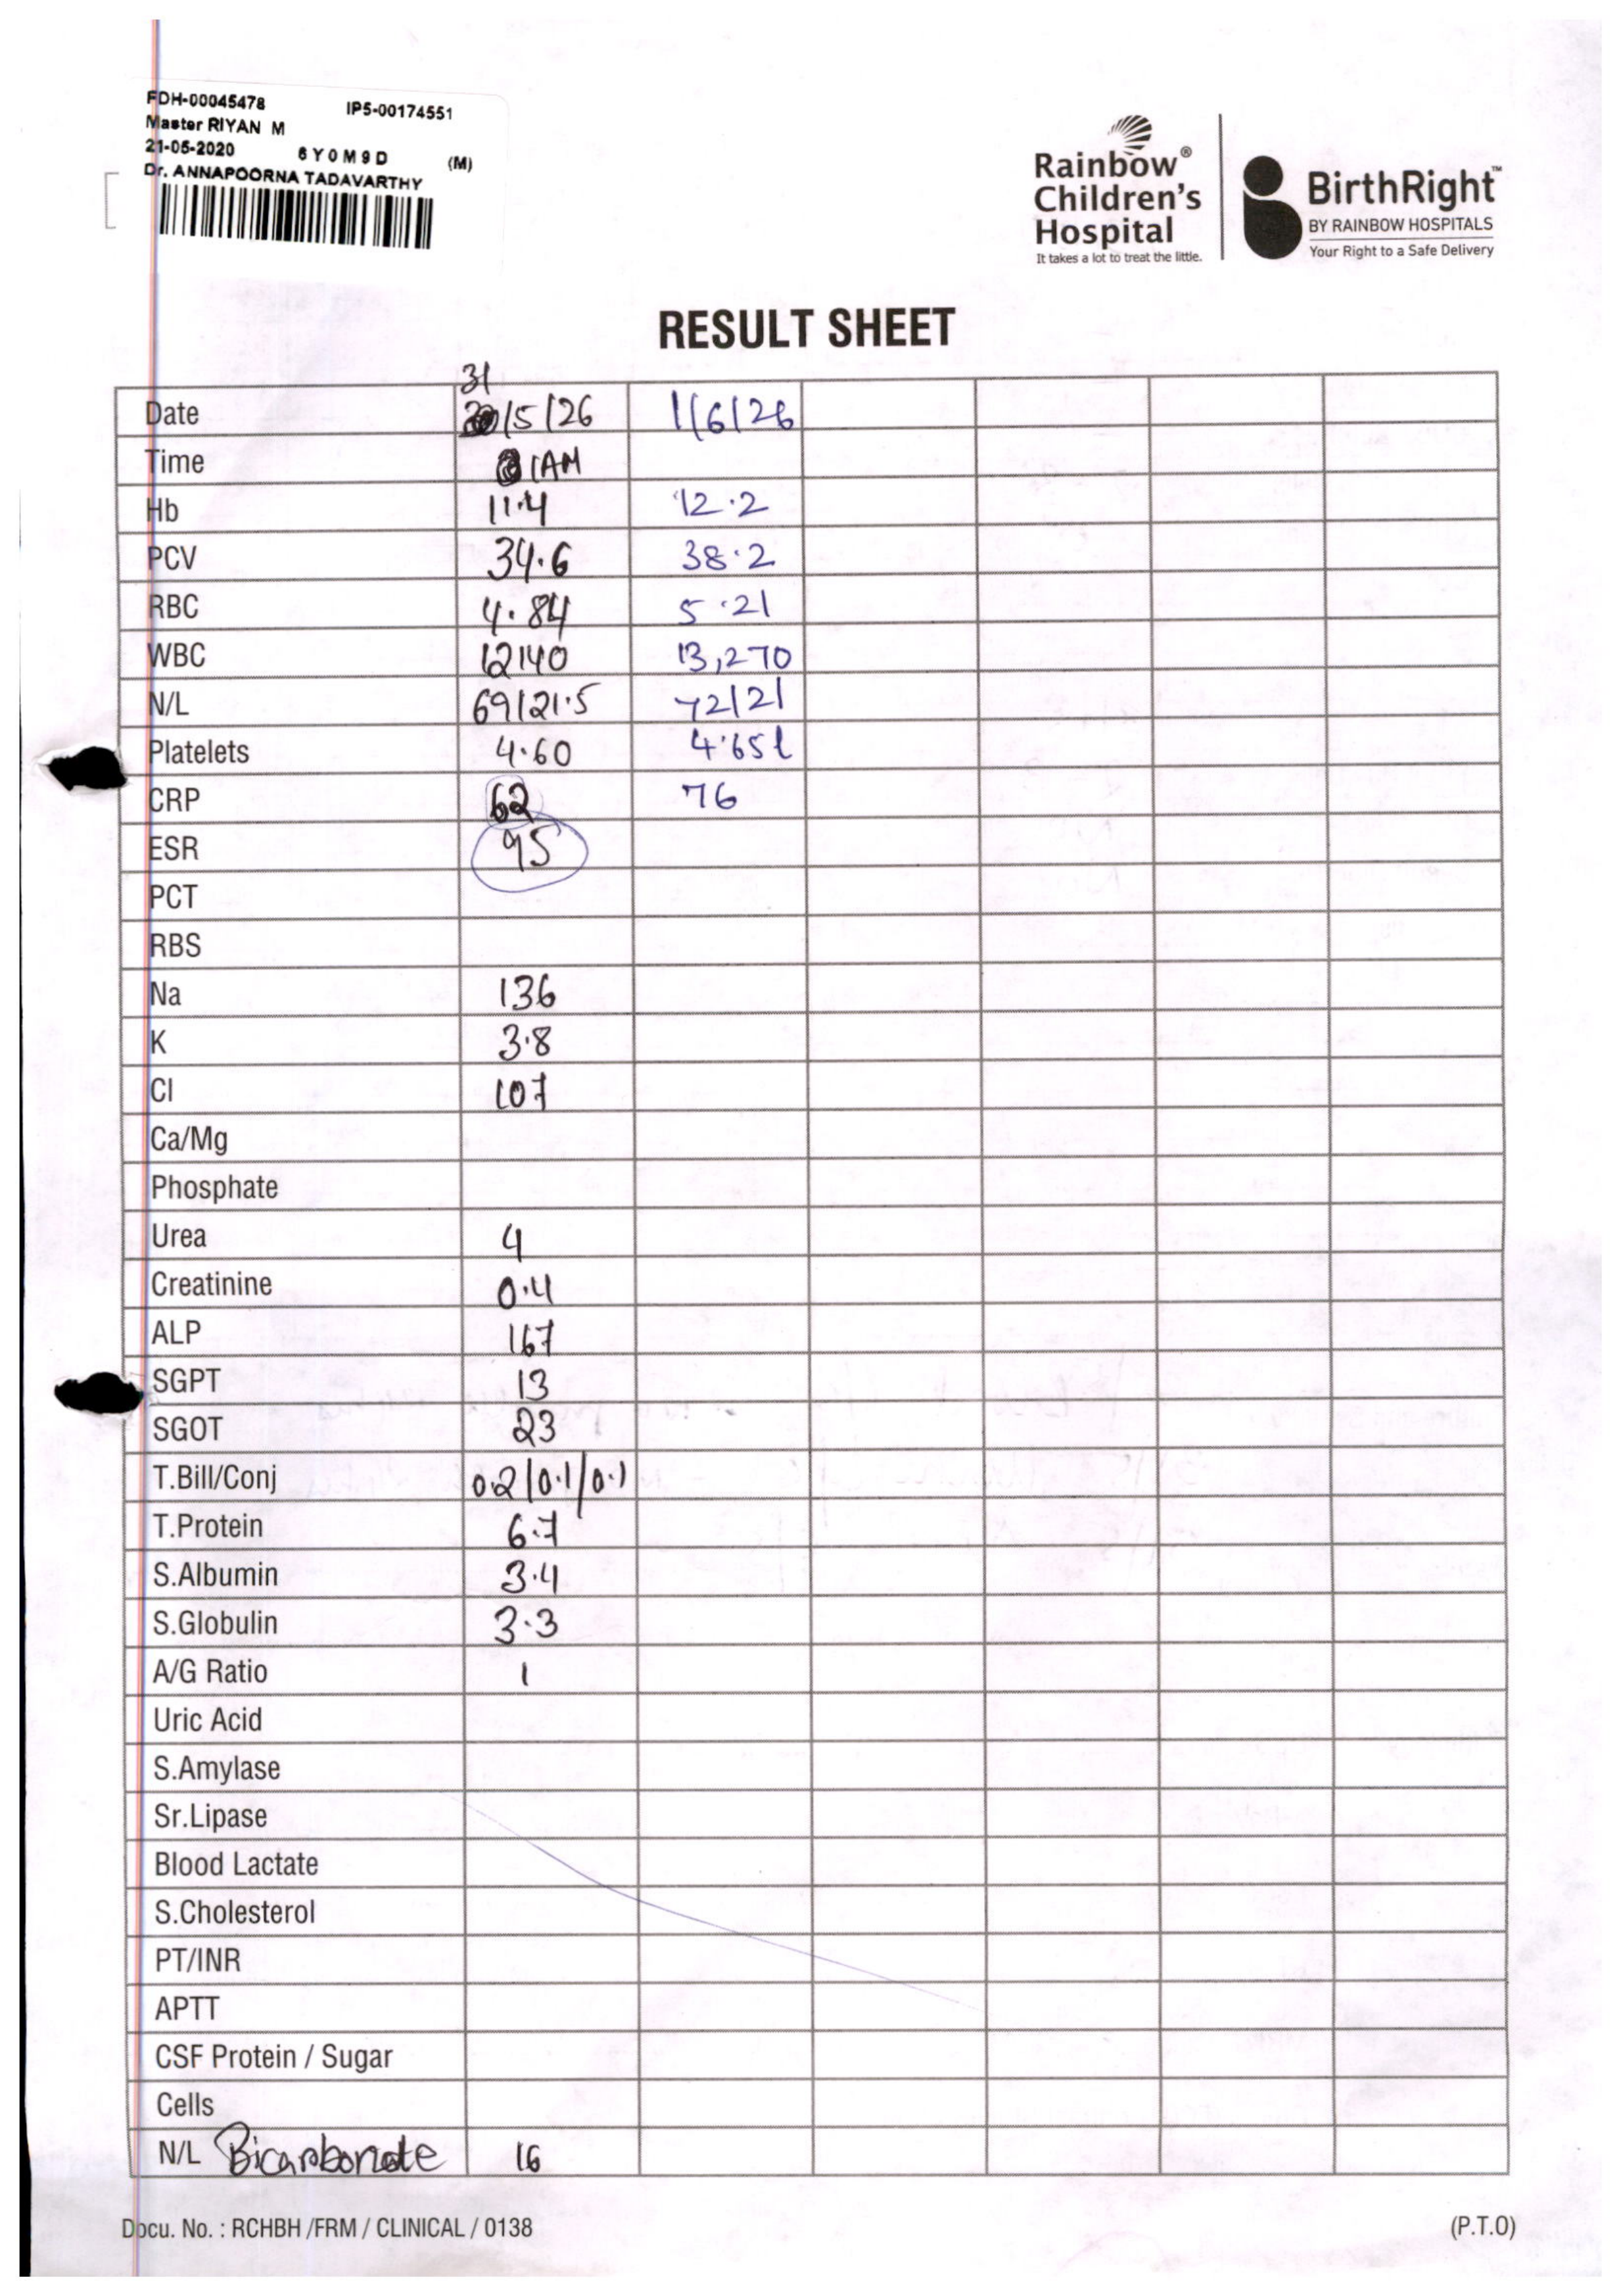 FDH-00045478 IP5-00174551
Master RIYAN M
21-05-2020 6Y0M9D (M)
Dr. ANNAPOORNA TADAVARTHY
Rainbow®
Children's
Hospital
It takes a lot to treat the little.
BirthRight™
BY RAINBOW HOSPITALS
Your Right to a Safe Delivery
RESULT SHEET
31
Date /5/26 1/6/26
Time 1AM
Hb 11.4 12.2
PCV 34.6 38.2
RBC 4.84 5.21
WBC 12140 13,270
N/L 69/21.5 72/21
Platelets 4.60 4.65l
CRP 62 76
ESR 95
PCT
RBS
Na 136
K 3.8
Cl 107
Ca/Mg
Phosphate
Urea 4
Creatinine 0.4
ALP 167
SGPT 13
SGOT 23
T.Bill/Conj 0.2/0.1/0.1
T.Protein 6.7
S.Albumin 3.4
S.Globulin 3.3
A/G Ratio 1
Uric Acid
S.Amylase
Sr.Lipase
Blood Lactate
S.Cholesterol
PT/INR
APTT
CSF Protein / Sugar
Cells
N/L Bicarbonate 16
Docu. No. : RCHBH /FRM / CLINICAL / 0138 (P.T.O)